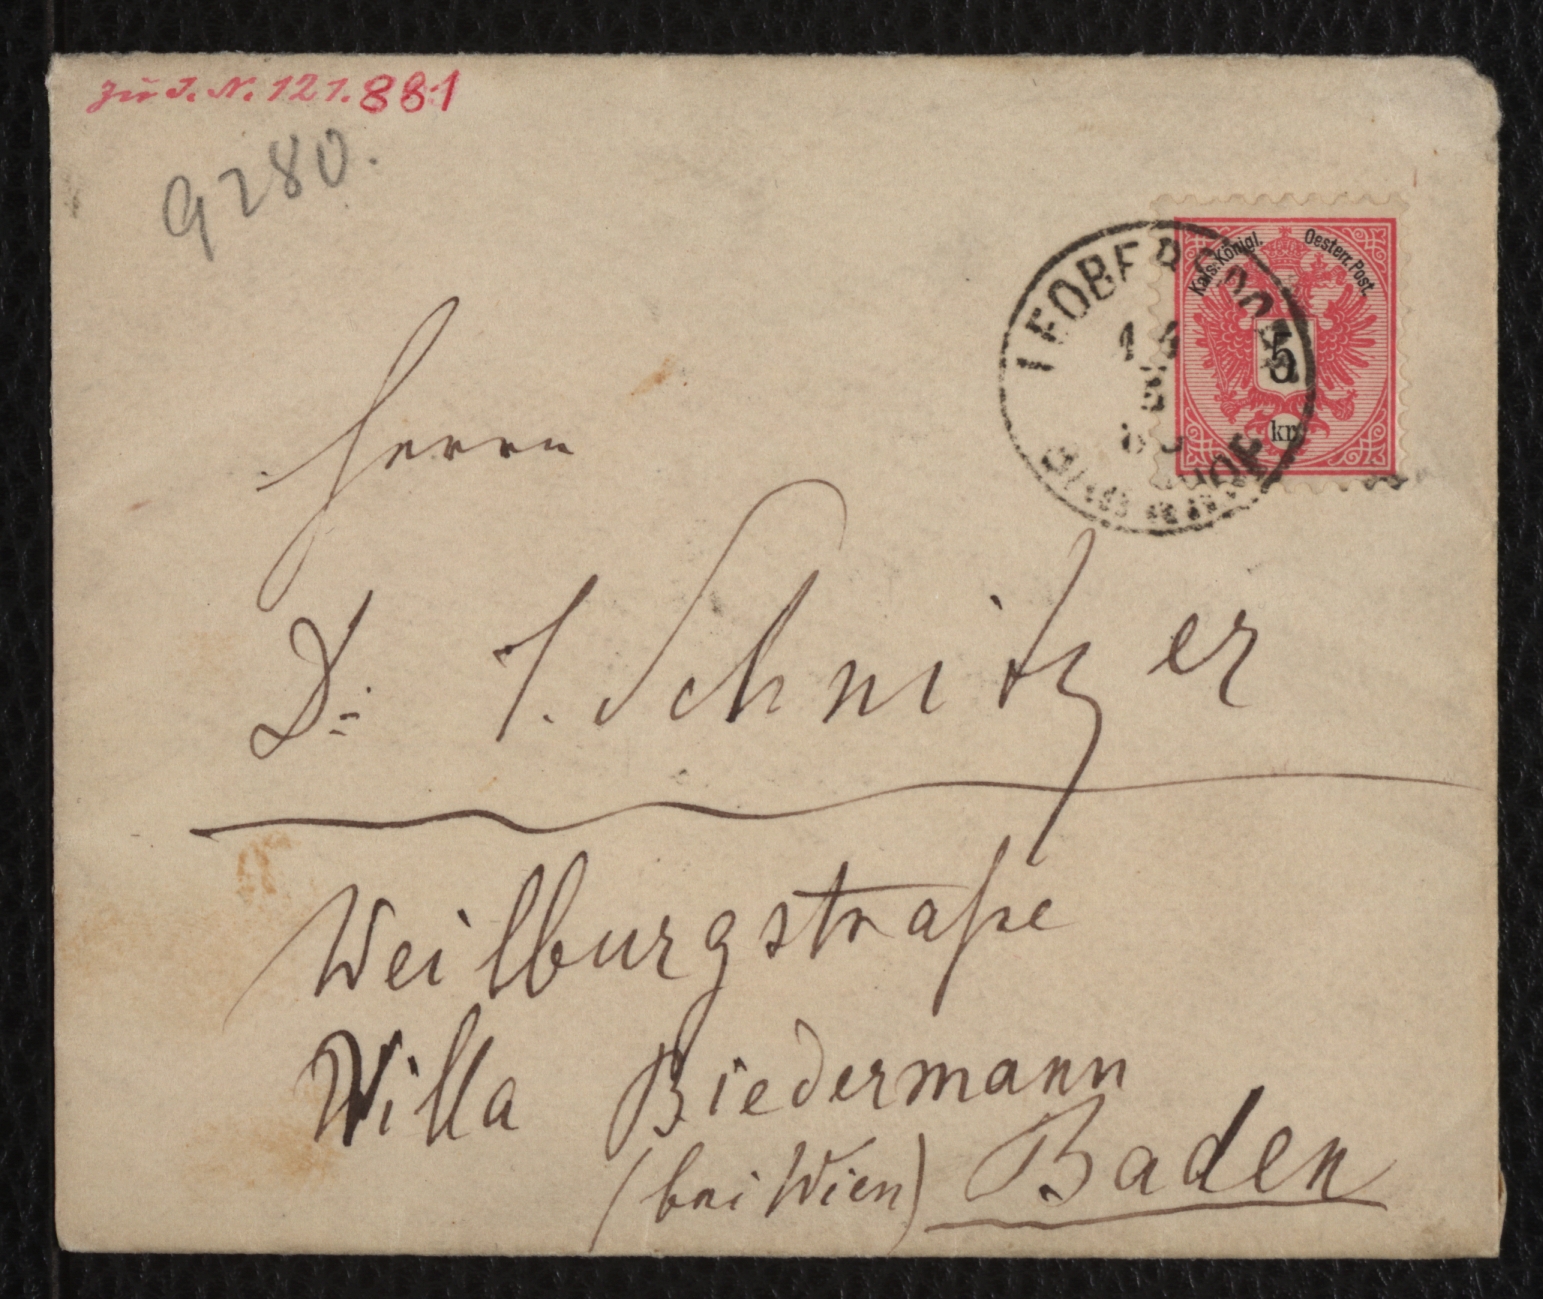 zu I. N. 121.881
9280.
Kais. Königl. Oesterr. Post.
5
kr.
Herrn
Dr. I. Schnitzer
Weilburgstraße
Villa Biedermann
(bei Wien) Baden